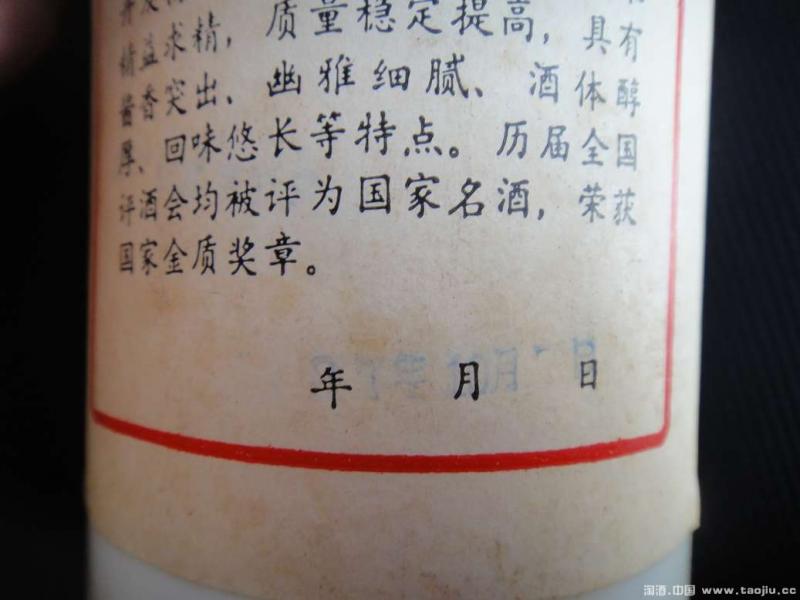 益求精，质量稳定提高，具有
酱香突出、幽雅细腻、酒体醇
厚、回味悠长等特点。历届全国
评酒会均被评为国家名酒，荣获
国家金质奖章。
年 月 日
淘酒.中国 www.taojiu.cc